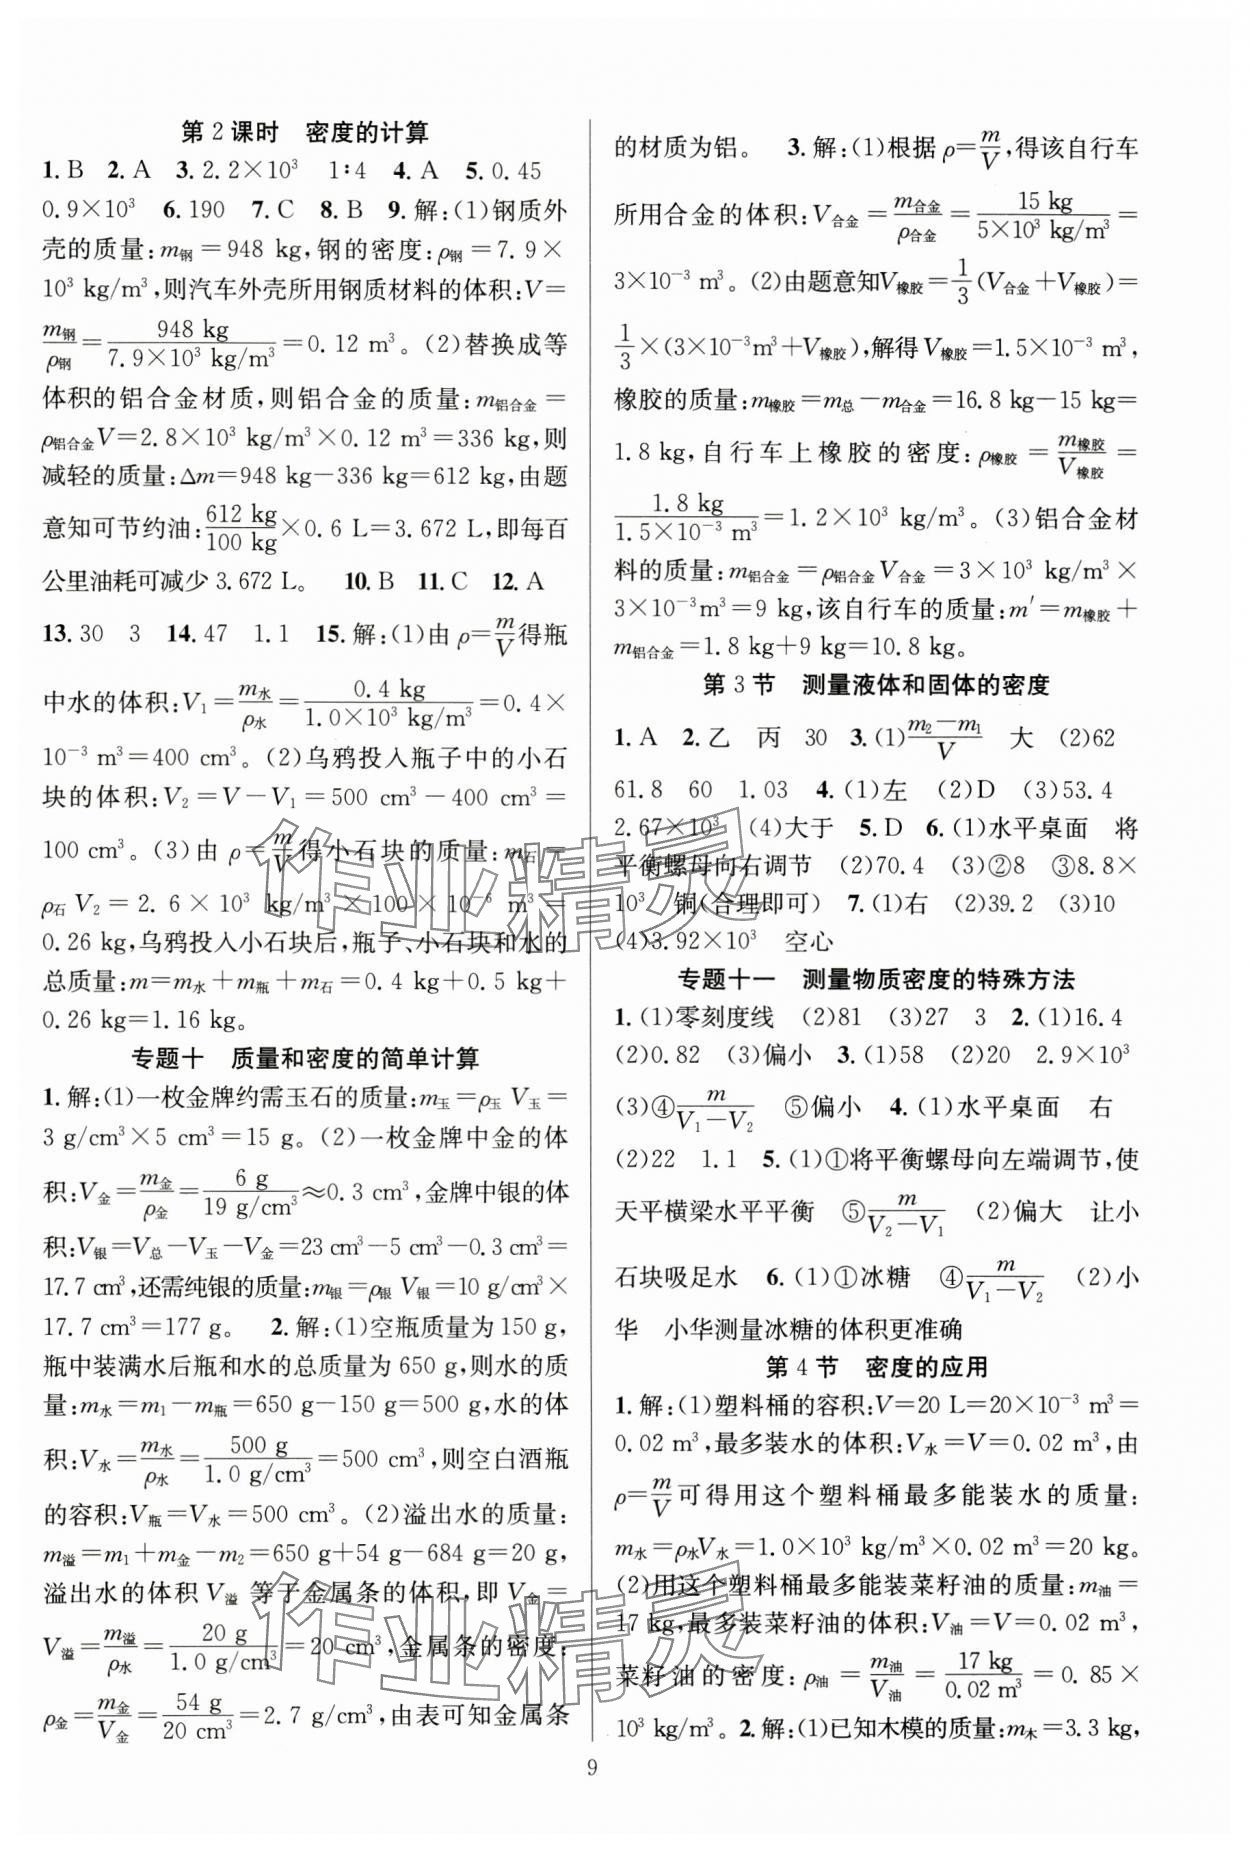 第2课时　密度的计算
1.B　2.A　3.2.2×10³　1∶4　4.A　5.0.45
0.9×10³　6.190　7.C　8.B　9.解:(1)钢质外
壳的质量:m钢=948 kg,钢的密度:ρ钢=7.9×
10³ kg/m³,则汽车外壳所用钢质材料的体积:V=
m钢/ρ钢=948 kg/(7.9×10³ kg/m³)=0.12 m³。(2)替换成等
体积的铝合金材质,则铝合金的质量:m铝合金=
ρ铝合金V=2.8×10³ kg/m³×0.12 m³=336 kg,则
减轻的质量:Δm=948 kg-336 kg=612 kg,由题
意知可节约油:612 kg/100 kg×0.6 L=3.672 L,即每百
公里油耗可减少 3.672 L。　10.B　11.C　12.A
13.30　3　14.47　1.1　15.解:(1)由 ρ=m/V得瓶
中水的体积:V₁=m水/ρ水=0.4 kg/(1.0×10³ kg/m³)=0.4×
10⁻³ m³=400 cm³。(2)乌鸦投入瓶子中的小石
块的体积:V₂=V-V₁=500 cm³-400 cm³=
100 cm³。(3)由 ρ=m/V得小石块的质量:m石=
ρ石 V₂=2.6×10³ kg/m³×100×10⁻⁶ m³=
0.26 kg,乌鸦投入小石块后,瓶子、小石块和水的
总质量:m=m水+m瓶+m石=0.4 kg+0.5 kg+
0.26 kg=1.16 kg。
专题十　质量和密度的简单计算
1.解:(1)一枚金牌约需玉石的质量:m玉=ρ玉 V玉=
3 g/cm³×5 cm³=15 g。(2)一枚金牌中金的体
积:V金=m金/ρ金=6 g/(19 g/cm³)≈0.3 cm³,金牌中银的体
积:V银=V总-V玉-V金=23 cm³-5 cm³-0.3 cm³=
17.7 cm³,还需纯银的质量:m银=ρ银 V银=10 g/cm³×
17.7 cm³=177 g。　2.解:(1)空瓶质量为150 g,
瓶中装满水后瓶和水的总质量为 650 g,则水的质
量:m水=m₁-m瓶=650 g-150 g=500 g,水的体
积:V水=m水/ρ水=500 g/(1.0 g/cm³)=500 cm³,则空白酒瓶
的容积:V瓶=V水=500 cm³。(2)溢出水的质量:
m溢=m₁+m金-m₂=650 g+54 g-684 g=20 g,
溢出水的体积 V溢 等于金属条的体积,即 V金=
V溢=m溢/ρ水=20 g/(1.0 g/cm³)=20 cm³,金属条的密度:
ρ金=m金/V金=54 g/20 cm³=2.7 g/cm³,由表可知金属条
的材质为铝。　3.解:(1)根据 ρ=m/V,得该自行车
所用合金的体积:V合金=m合金/ρ合金=15 kg/(5×10³ kg/m³)=
3×10⁻³ m³。(2)由题意知V橡胶=1/3(V合金+V橡胶)=
1/3×(3×10⁻³m³+V橡胶),解得 V橡胶=1.5×10⁻³ m³,
橡胶的质量:m橡胶=m总-m合金=16.8 kg-15 kg=
1.8 kg,自行车上橡胶的密度:ρ橡胶=m橡胶/V橡胶=
1.8 kg/(1.5×10⁻³ m³)=1.2×10³ kg/m³。(3)铝合金材
料的质量:m铝合金=ρ铝合金V合金=3×10³ kg/m³×
3×10⁻³m³=9 kg,该自行车的质量:m′=m橡胶+
m铝合金=1.8 kg+9 kg=10.8 kg。
第3节　测量液体和固体的密度
1.A　2.乙　丙　30　3.(1)(m₂-m₁)/V　大　(2)62
61.8　60　1.03　4.(1)左　(2)D　(3)53.4
2.67×10³　(4)大于　5.D　6.(1)水平桌面　将
平衡螺母向右调节　(2)70.4　(3)②8　③8.8×
10³　铜(合理即可)　7.(1)右　(2)39.2　(3)10
(4)3.92×10³　空心
专题十一　测量物质密度的特殊方法
1.(1)零刻度线　(2)81　(3)27　3　2.(1)16.4
(2)0.82　(3)偏小　3.(1)58　(2)20　2.9×10³
(3)④m/(V₁-V₂)　⑤偏小　4.(1)水平桌面　右
(2)22　1.1　5.(1)①将平衡螺母向左端调节,使
天平横梁水平平衡　⑤m/(V₂-V₁)　(2)偏大　让小
石块吸足水　6.(1)①冰糖　④m/(V₁-V₂)　(2)小
华　小华测量冰糖的体积更准确
第4节　密度的应用
1.解:(1)塑料桶的容积:V=20 L=20×10⁻³ m³=
0.02 m³,最多装水的体积:V水=V=0.02 m³,由
ρ=m/V可得用这个塑料桶最多能装水的质量:
m水=ρ水V水=1.0×10³ kg/m³×0.02 m³=20 kg。
(2)用这个塑料桶最多能装菜籽油的质量:m油=
17 kg,最多装菜籽油的体积:V油=V=0.02 m³,
菜籽油的密度:ρ油=m油/V油=17 kg/0.02 m³=0.85×
10³ kg/m³。　2.解:(1)已知木模的质量:m木=3.3 kg,
9
作业精灵
作业精灵